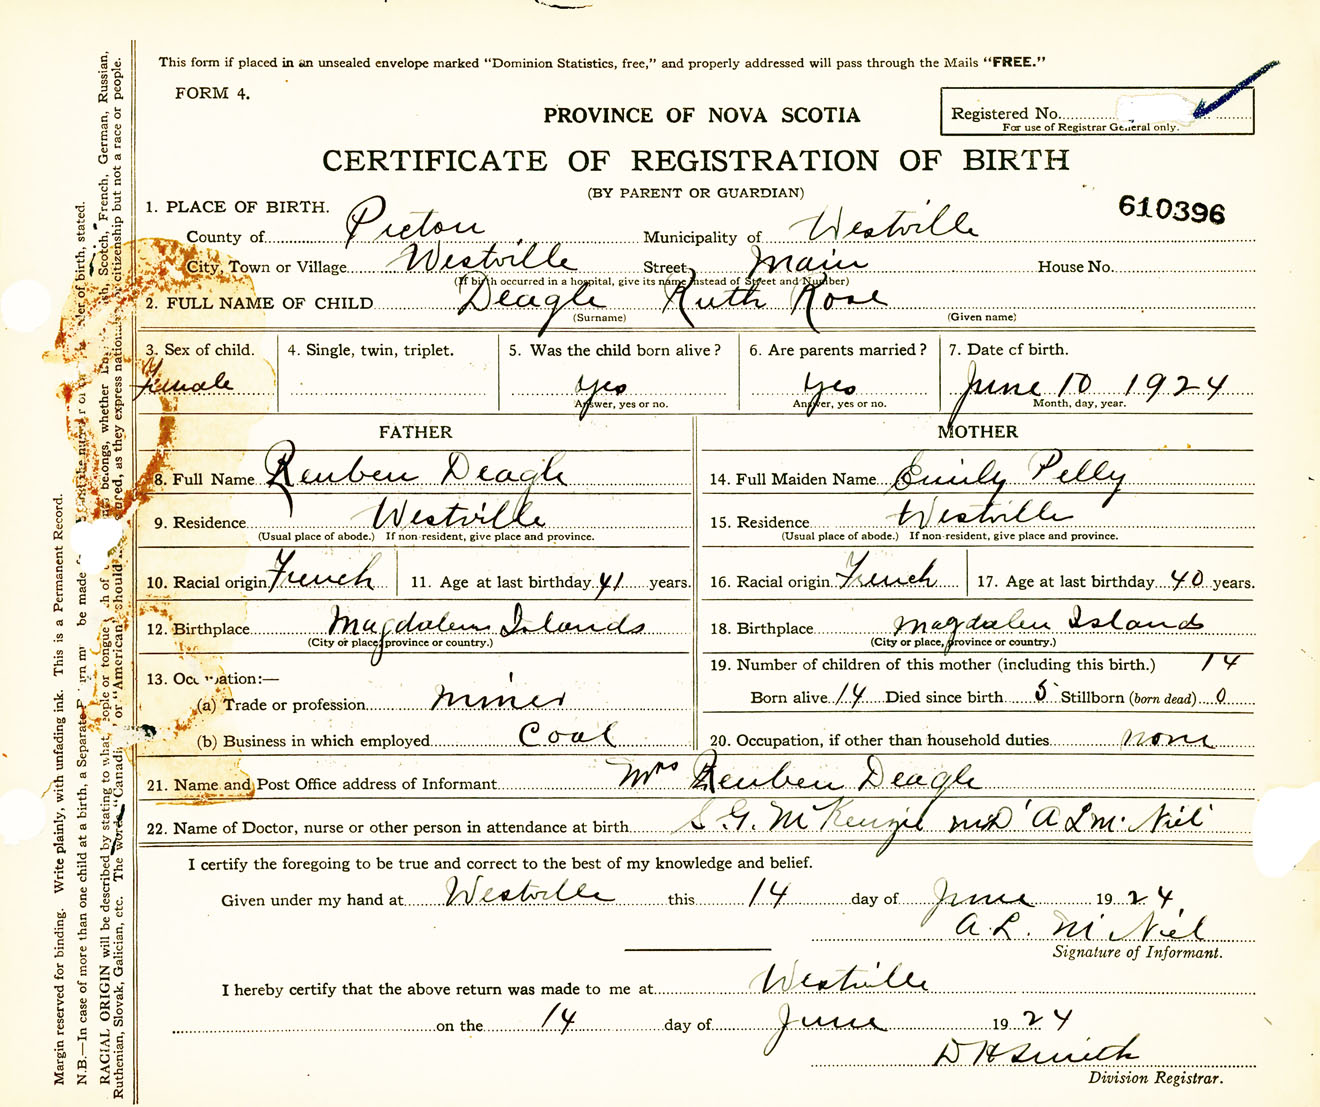 This form if placed in an unsealed envelope marked "Dominion Statistics, free," and properly addressed will pass through the Mails "FREE."
FORM 4.
PROVINCE OF NOVA SCOTIA
Registered No.
For use of Registrar General only.
CERTIFICATE OF REGISTRATION OF BIRTH
(BY PARENT OR GUARDIAN)
610396
1. PLACE OF BIRTH.
County of Pictou Municipality of Westville
City, Town or Village Westville Street Main House No.
(If birth occurred in a hospital, give its name instead of Street and Number)
2. FULL NAME OF CHILD Deagle Ruth Rose
(Surname) (Given name)
3. Sex of child. 4. Single, twin, triplet. 5. Was the child born alive? 6. Are parents married? 7. Date of birth.
Female yes yes June 10 1924
Answer, yes or no. Answer, yes or no. Month, day, year.
FATHER MOTHER
8. Full Name Reuben Deagle 14. Full Maiden Name Emily Pelly
9. Residence Westville 15. Residence Westville
(Usual place of abode.) If non-resident, give place and province. (Usual place of abode.) If non-resident, give place and province.
10. Racial origin French 11. Age at last birthday 41 years. 16. Racial origin French 17. Age at last birthday 40 years.
12. Birthplace Magdalen Islands 18. Birthplace Magdalen Islands
(City or place, province or country.) (City or place, province or country.)
19. Number of children of this mother (including this birth.) 14
13. Occupation:—
(a) Trade or profession miner Born alive 14 Died since birth 5 Stillborn (born dead) 0
(b) Business in which employed Coal 20. Occupation, if other than household duties none
21. Name and Post Office address of Informant Mrs Reuben Deagle
22. Name of Doctor, nurse or other person in attendance at birth S. G. McKenzie MD A L Mc Niel
I certify the foregoing to be true and correct to the best of my knowledge and belief.
Given under my hand at Westville this 14 day of June 1924
A. L. Mc Niel
Signature of Informant.
I hereby certify that the above return was made to me at Westville
on the 14 day of June 1924
D H Smith
Division Registrar.
Margin reserved for binding. Write plainly, with unfading ink. This is a Permanent Record.
N.B.—In case of more than one child at a birth, a Separate must be made and the number of birth, stated.
RACIAL ORIGIN will be described by stating to what people or tongue belongs, whether Scotch, French, German, Russian,
Ruthenian, Slovak, Galician, etc. The words "Canadian" or "American" should as they express citizenship but not a race or people.